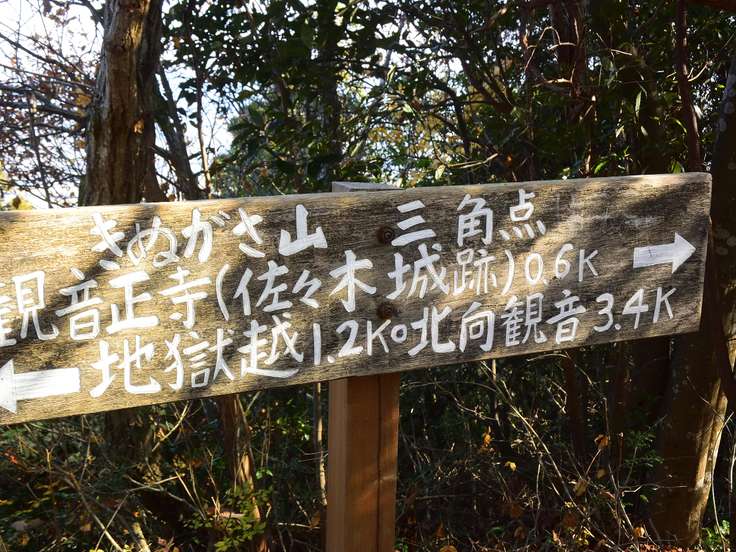 きぬがさ山 三角点
観音正寺(佐々木城跡)0.6K →
← 地獄越1.2K。北向観音3.4K